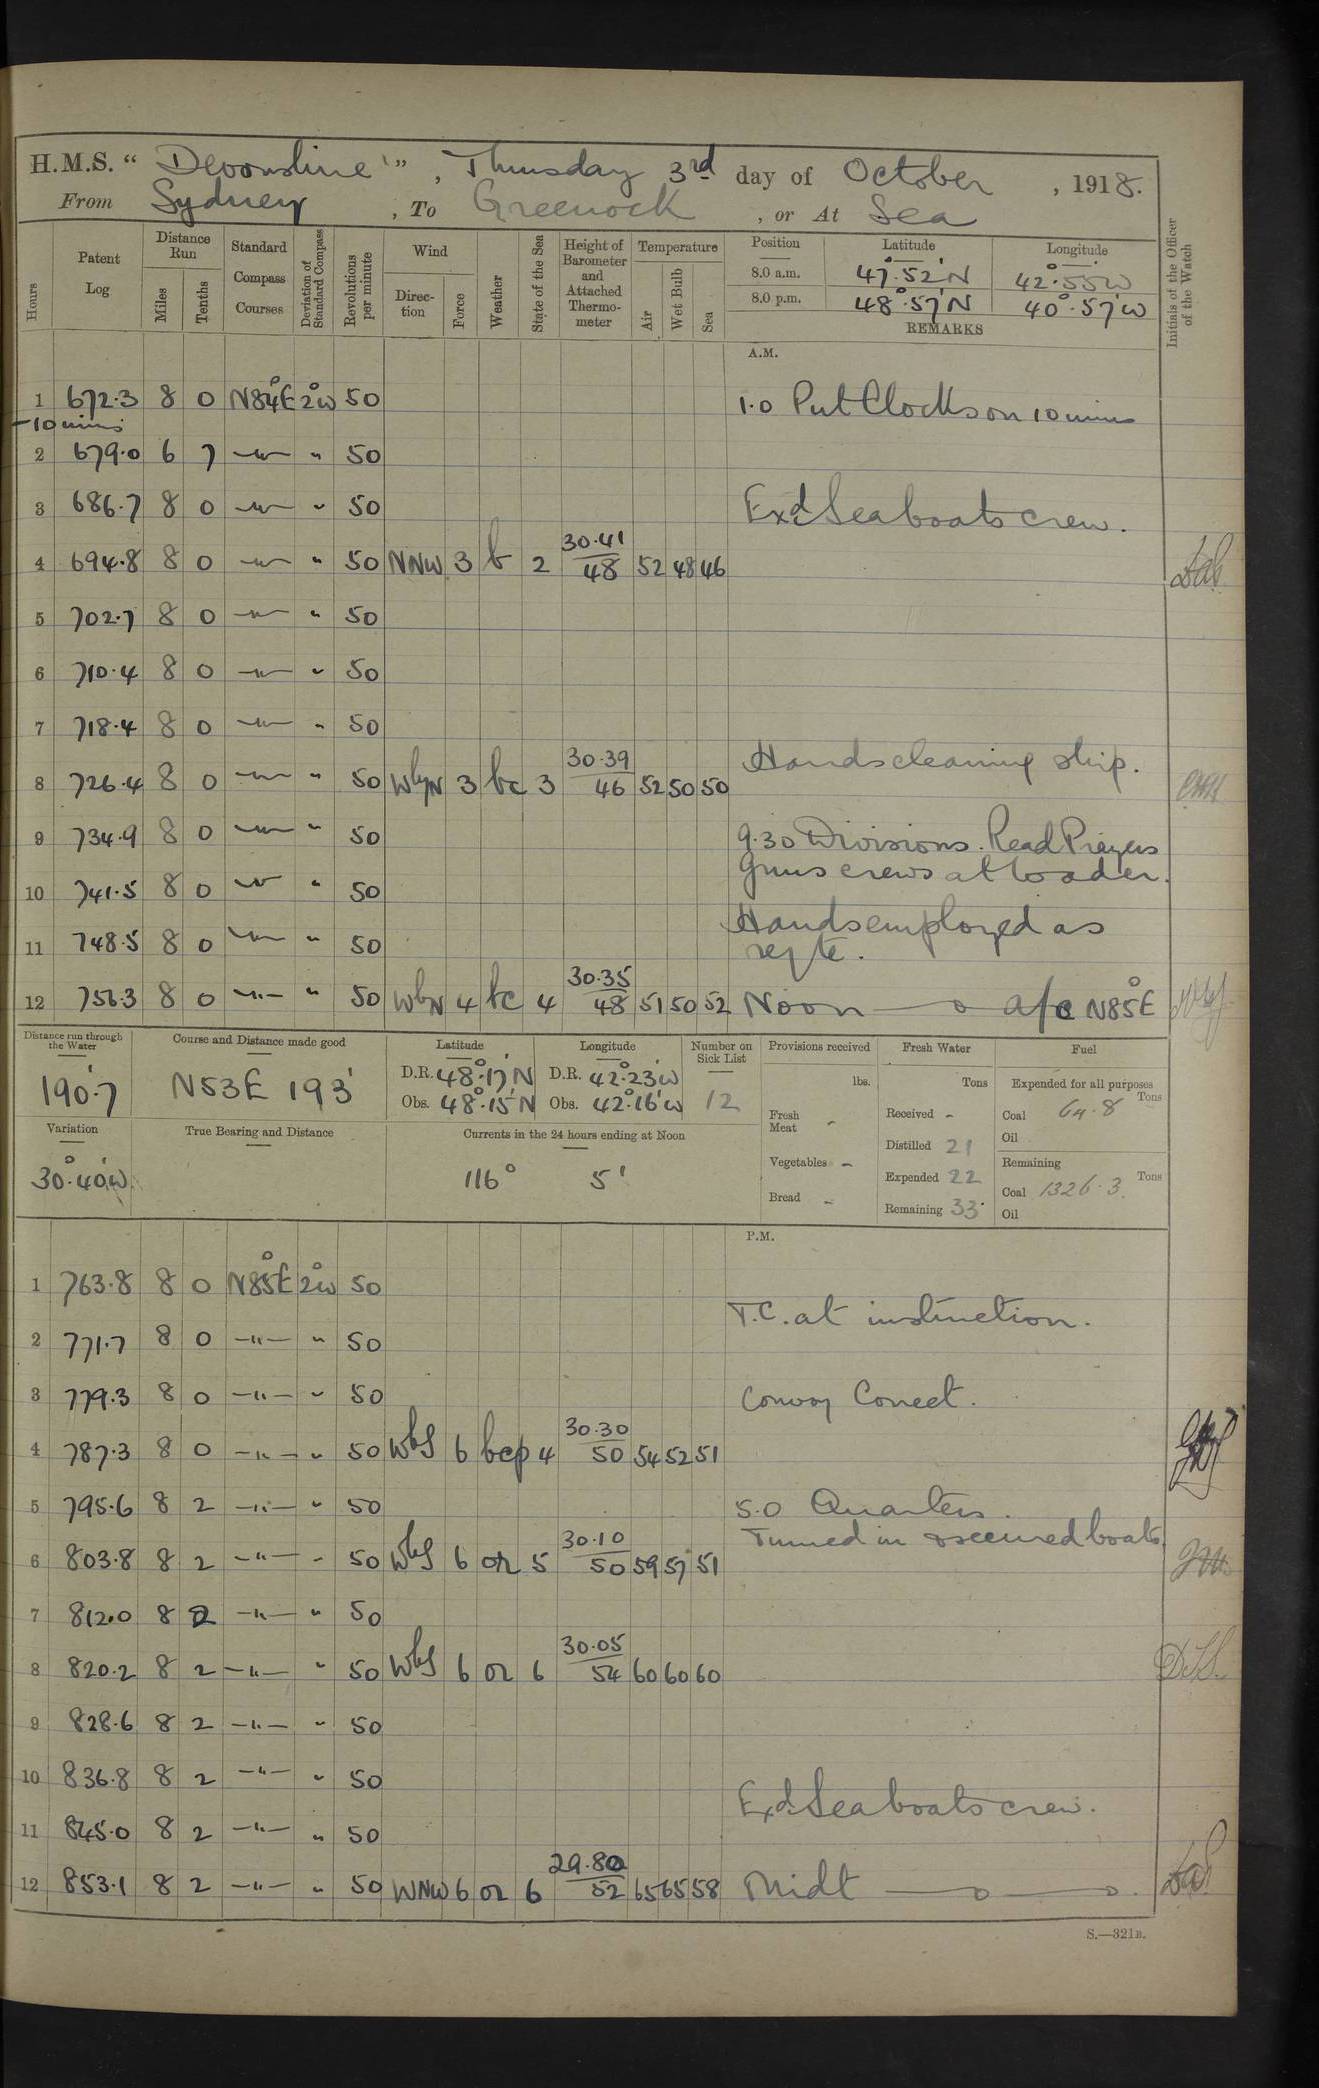 H.M.S. " Devonshire ", Thursday 3rd day of October , 1918.
From Sydney , To Greenock , or At Sea
Hours
Patent Log
Distance Run
Miles
Tenths
Standard Compass Courses
Deviation of Standard Compass
Revolutions per minute
Wind
Direction
Force
Weather
State of the Sea
Height of Barometer and Attached Thermometer
Temperature
Air
Wet Bulb
Sea
Position Latitude Longitude
8.0 a.m. 47°.52'N 42°.55'W
8.0 p.m. 48°.57'N 40°.57'W
REMARKS
Initials of the Officer of the Watch
A.M.
1 672.3 8 0 N84°E 2°W 50 1.0 Put Clocks on 10 mins
-10 mins
2 679.0 6 7 —"— " 50
3 686.7 8 0 —"— " 50 Exd. Sea boats crew.
4 694.8 8 0 —"— " 50 NNW 3 b 2 30.41 48 52 48 46
5 702.7 8 0 —"— " 50
6 710.4 8 0 —"— " 50
7 718.4 8 0 —"— " 50
8 726.4 8 0 —"— " 50 WbyN 3 bc 3 30.39 46 52 50 50 Hands cleaning ship.
9 734.9 8 0 —"— " 50 9.30 Divisions. Read Prayers
10 741.5 8 0 —"— " 50 Guns crews at loader.
11 748.5 8 0 —"— " 50 Hands employed as reqte.
12 756.3 8 0 —"— " 50 WbN 4 bc 4 30.35 48 51 50 52 Noon — o a/c N85°E
Distance run through the Water 190.7
Course and Distance made good N53E 193'
Latitude D.R. 48°.17'N Obs. 48°.15'N
Longitude D.R. 42°.23'W Obs. 42°.16'W
Number on Sick List 12
Provisions received
lbs.
Fresh Meat -
Vegetables -
Bread -
Fresh Water
Tons
Received -
Distilled 21
Expended 22
Remaining 33
Fuel
Expended for all purposes
Tons
Coal 64.8
Oil
Remaining
Tons
Coal 1326.3
Oil
Variation 30°.40'W
True Bearing and Distance
Currents in the 24 hours ending at Noon 116° 5'
P.M.
1 763.8 8 0 N85°E 2°W 50
2 771.7 8 0 —"— " 50 T.C. at instruction.
3 779.3 8 0 —"— " 50 Convoy Correct.
4 787.3 8 0 —"— " 50 WbS 6 bcp 4 30.30 50 54 52 51
5 795.6 8 2 —"— " 50 5.0 Quarters.
6 803.8 8 2 —"— " 50 WbS 6 or 5 30.10 50 59 57 51 Turned in & secured boats
7 812.0 8 2 —"— " 50
8 820.2 8 2 —"— " 50 WbS 6 or 6 30.05 54 60 60 60
9 828.6 8 2 —"— " 50
10 836.8 8 2 —"— " 50
11 845.0 8 2 —"— " 50 Exd. Sea boats crew.
12 853.1 8 2 —"— " 50 WNW 6 or 6 29.80 52 65 65 58 Midt — o — o.
S.—321B.